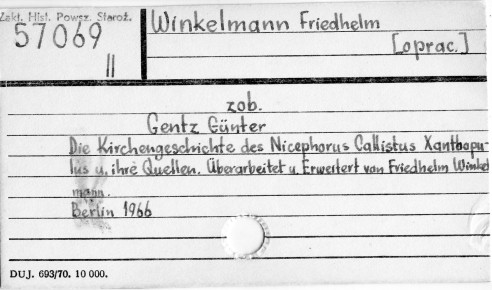 Zakł. Hist. Powsz. Staroż.
57069
II
Winkelmann Friedhelm
[oprac.]
zob.
Gentz Günter
Die Kirchengeschichte des Nicephorus Callistus Xanthopu-
lus u. ihre Quellen. Überarbeitet u. Erweitert von Friedhelm Winkel
mann.
Berlin 1966
DUJ. 693/70. 10 000.